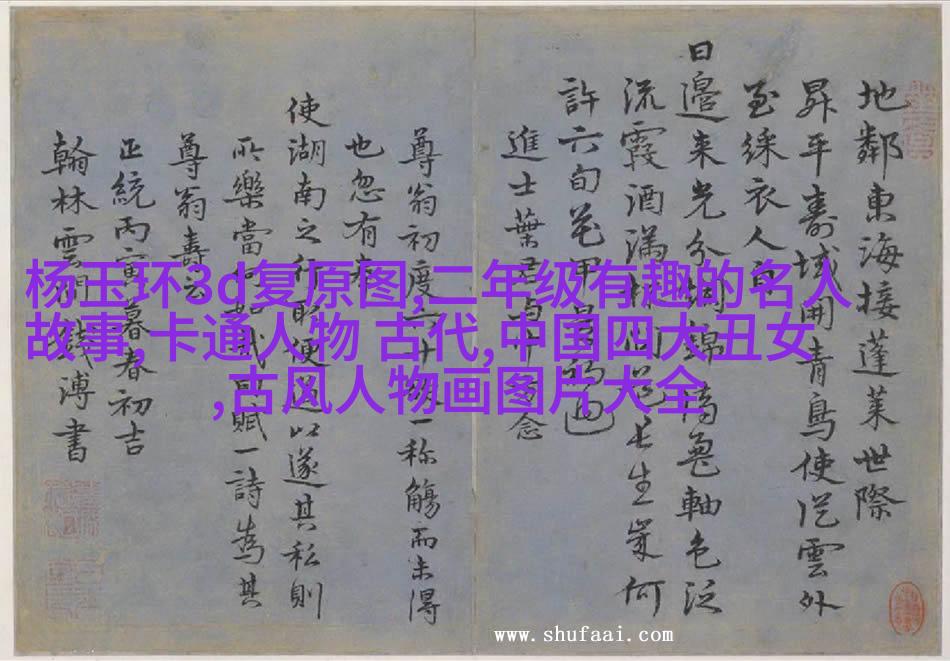 地鄰東海接蓬萊世際
昇平壽域開青鳥使從雲外
至綵衣人自
日邊來光分錦軸色泛
流霞酒滿杯長生幾何
許六旬花甲週
進士葉君念
尊翁初度一称觴而未得
也忽有
使湖南之行取便道以遂其私則
所樂當何如哉賦一詩為其
尊翁壽云
正統丙寅暮春初吉
翰林雲間錢溥書
杨玉环3d复原图,二年级有趣的名人
故事,卡通人物 古代,中国四大丑女
,古风人物画图片大全
www.shufaai.com